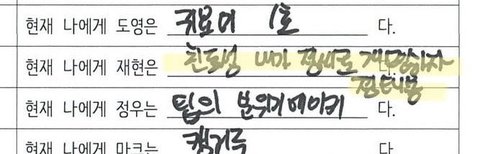 현재 나에게 도영은 귀요미 1호 다.
현재 나에게 재현은 친도성 내가 정씨로 개명하자
정태용
현재 나에게 정우는 팀의 분위기메이커 다.
현재 나에게 마크는 캥거루